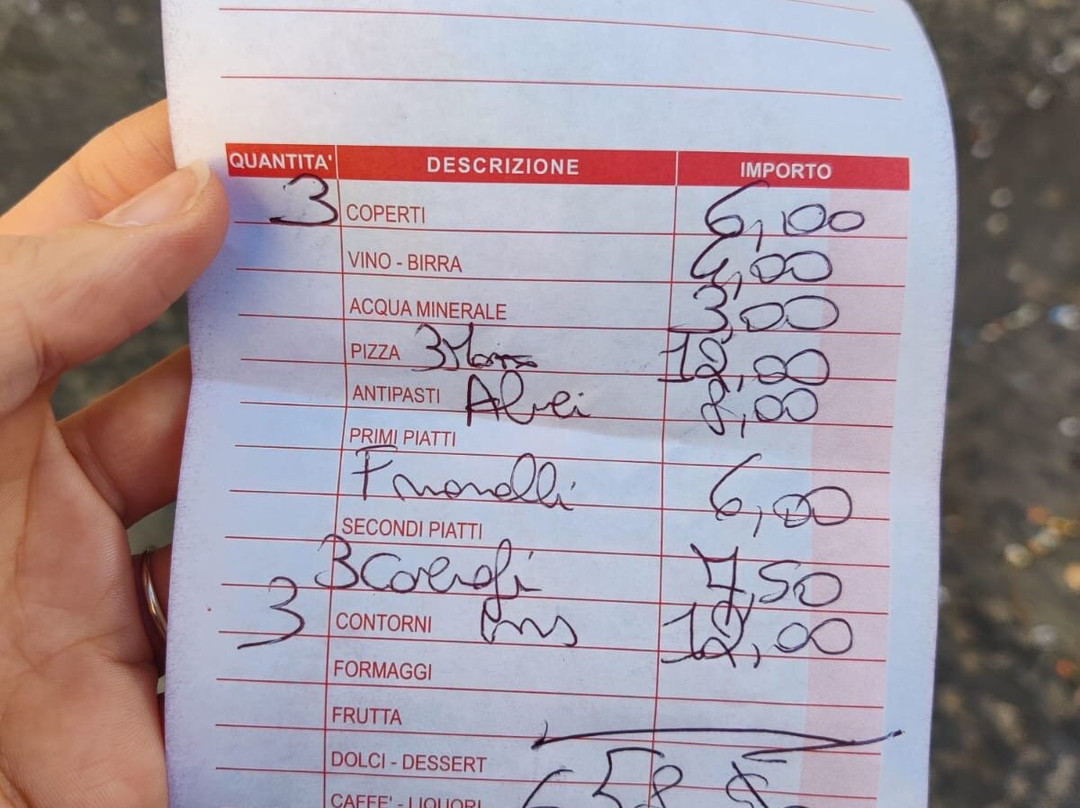 QUANTITA' DESCRIZIONE IMPORTO
3 COPERTI 6,00
VINO - BIRRA 4,00
ACQUA MINERALE 3,00
PIZZA 3 12,00
ANTIPASTI Alici 8,00
PRIMI PIATTI
6,00
SECONDI PIATTI
3 7,50
3 CONTORNI 12,00
FORMAGGI
FRUTTA
DOLCI - DESSERT
CAFFE' - LIQUORI